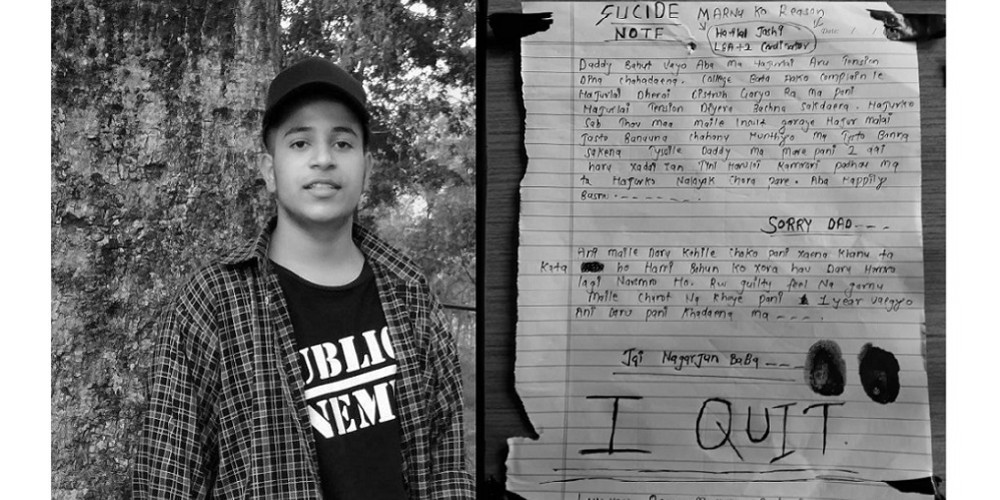 PUBLIC
ENEMY
SUCIDE MARNA KO Reason
NOTE
LSA +2 Cordinator
Daddy Bahut vayo Aba ma Hajurlai Aru Tension
Dina chahadaena. College Bata Aako Complain le
Hajurlai Dherai Garya Ra ma pani
Hajurlai Tension Diyera Bachna sakdaena. Hajurko
Sab Thau maa maile Insult garaye Hajur malai
Jasto Banauna chahanu Hunthiyo ma Tyo Banna
sakena Tyaile Daddy ma mare pani 2
haru xadai xan Tini Haru lai Ramrari padhau ma
ta Hajurko Nalayak Chora pare. Aba Happily
Basnu.------
SORRY DAD---
Ani maile Daru Kahile chako pani xaena Khanu ta
Kata ho Hami Bahun ko xora hau Daru Hamro
lagi Naramro Ho. Rw guilty feel Na garnu
Maile Churot Na khaye pani 1 year vaigyo
Ani Daru pani Khadaena ma ----.
Jai Nagarjun BaBa ---
I QUIT.